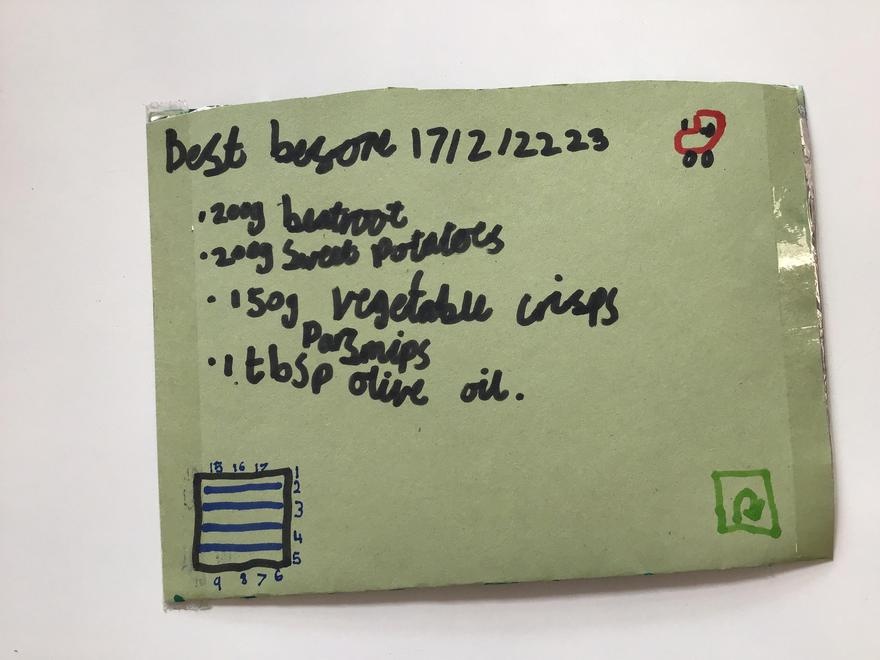 Best besore 17/2/2223
• 200g beatroot
• 200g Sweet potatoes
• 150g vegetable crisps
Parsmips
• 1 tbsp olive oil.
15 16 17
1
2
3
4
5
9 8 7 6